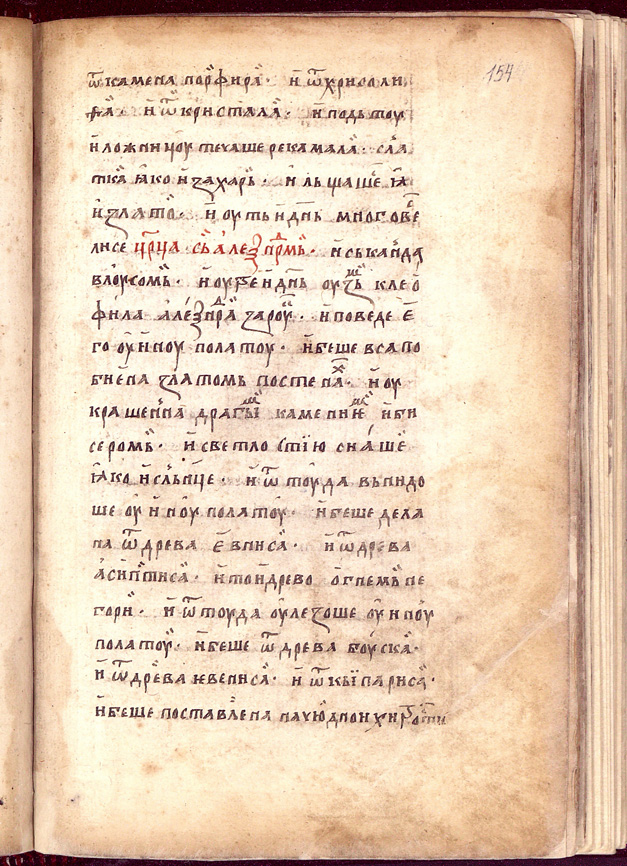 154
ѿ камена пор̾фира̏ · и҆ ѿ хрисоли
ѳа̏ · и҆ ѿ кристала̏ · и҆ подь тоу
и҆ ложницоу течаше река мала̏ · сла̑
тка̏ ꙗ҆ко и҆ захарь̏ · и҆
и҆ злато̏ · и҆ оутрьи д҃нь много
лисе цр҃ца сь але
влоусомь̏ · и҆ оу д҃нь клео҆
фила але заро · и҆ поведе е҆
го оу и҆ноу полатоу · и҆ беше вса по
биена златомь постена · и҆ оу
крашенна драгы камение и҆ би
серомь̏ · и҆ светлостїю сиꙗше
ꙗ҆ко и҆ слн҃це · и҆ ѿ тоуда вьнидо
ше оу и҆ноу полатоу · и҆ беше дела
на ѿ древа е҆вниса̏ · и҆ ѿ древа
а҆си и҆ тои древо огнемь не
гори̏ · и҆ ѿ тоуда оулезоше оу и҆ноу
полатоу̏ · и҆ беше ѿ древа боуска̏ ·
и҆ ѿ древа ю҆вениса̏ · и҆ ѿ кыпариса̏ ·
и҆ беше поставлена на